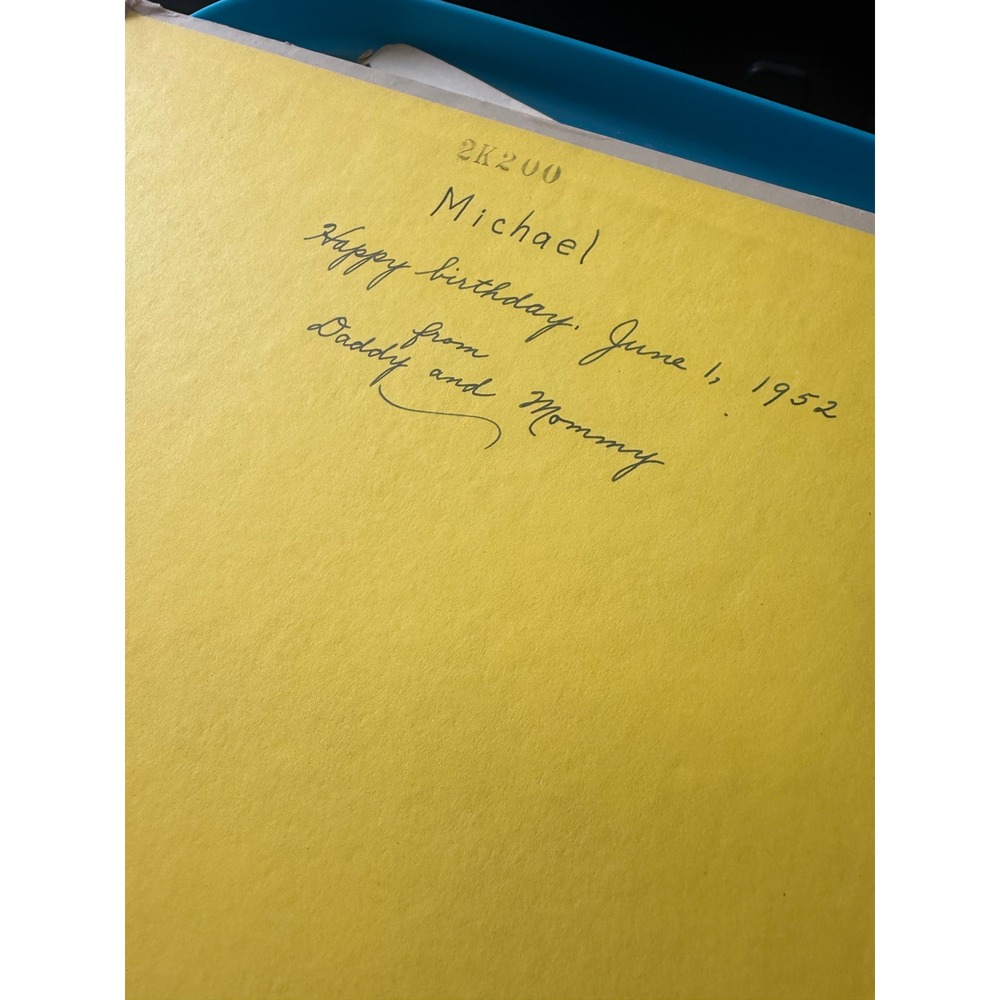 2K200
Michael
Happy birthday, June 1, 1952
from
Daddy and Mommy